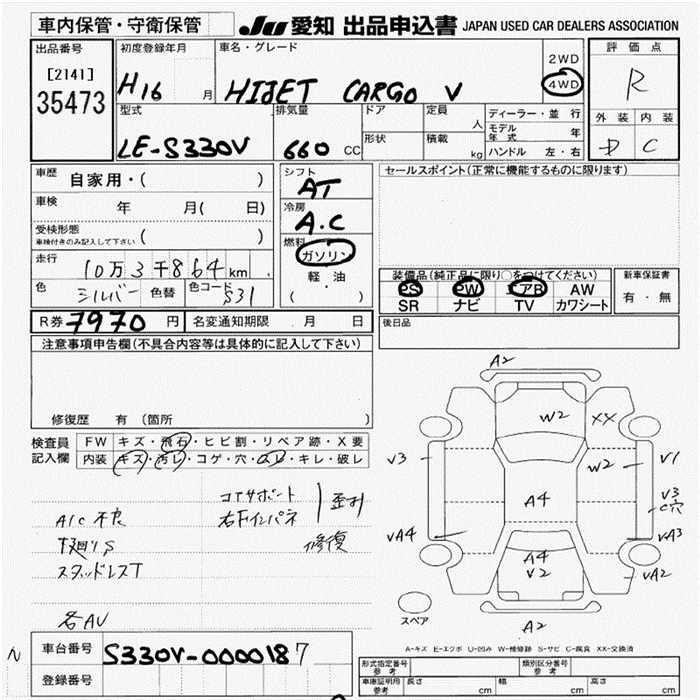 車内保管・守衛保管
JU 愛知 出品申込書 JAPAN USED CAR DEALERS ASSOCIATION
出品番号
[2141]
35473
初度登録年月
H16 月
車名・グレード
HIJET CARGO V
2WD
4WD
評価点
R
外装 内装
D C
型式
LE-S330V
排気量
660 CC
ドア
形状
定員
人
積載
kg
ディーラー・並行
モデル年式 年
ハンドル 左・右
車歴 自家用・( )
車検 年 月( 日)
受検形態
車検付きのみ記入して下さい ( )
走行 10万3千864 km
色 シルバー 色替 色コード S31
シフト
AT
冷房
A.C
燃料
ガソリン
軽・油
( )
セールスポイント(正常に機能するものに限ります)
装備品(純正品に限り○をつけてください)
PS PW エアB AW
SR ナビ TV カワシート
新車保証書
有・無
後日品
R券 7970 円 名変通知期限 月 日
注意事項申告欄(不具合内容等は具体的に記入して下さい)
修復歴 有 (箇所 )
検査員記入欄
FW キズ・飛石・ヒビ割・リペア跡・X要
内装 キズ・汚レ・コゲ・穴・スレ・キレ・破レ
コアサポート
右下インパネ
歪み
修復
A/C 不良
下廻りS
スタッドレスT
名AV
A2
W2
XX
V3
W2
V1
V3
C穴
A4
VA4
VA3
A4
V2
VA2
スペア
A2
A-キズ E-エクボ U-凹み W-補修跡 S-サビ C-腐食 XX-交換済
N
車台番号 S330V-0000187
登録番号
型式指定番号 参考
類別区分番号 参考
車庫証明用 参考 長さ cm 幅 cm 高さ cm